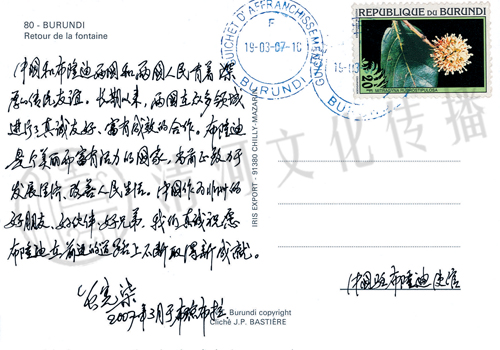 80 - BURUNDI
Retour de la fontaine
GUICHET D'AFFRANCHISSEMENT
F
19-03-07-16
BURUNDI
REPUBLIQUE DU BURUNDI
20F
中国和布隆迪两国和两国人民有着深
厚的传统友谊。长期以来，两国在众多领域
进行了真诚友好、富有成效的合作。布隆迪
是个美丽而富有活力的国家，当前正致力于
发展经济、改善人民生活。中国作为非洲的
好朋友、好伙伴、好兄弟，我们真诚祝愿
布隆迪在前进的道路上不断取得新成就。
2007年3月于布琼布拉
中国驻布隆迪使馆
IRIS EXPORT - 91380 CHILLY-MAZARIN
Burundi copyright
Cliché J.P. BASTIÈRE
清河文化传播